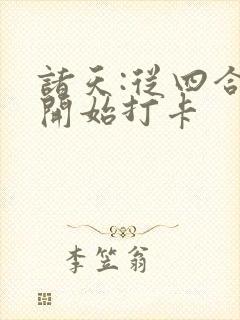 諸天:從四合
開始打卡
李笠翁